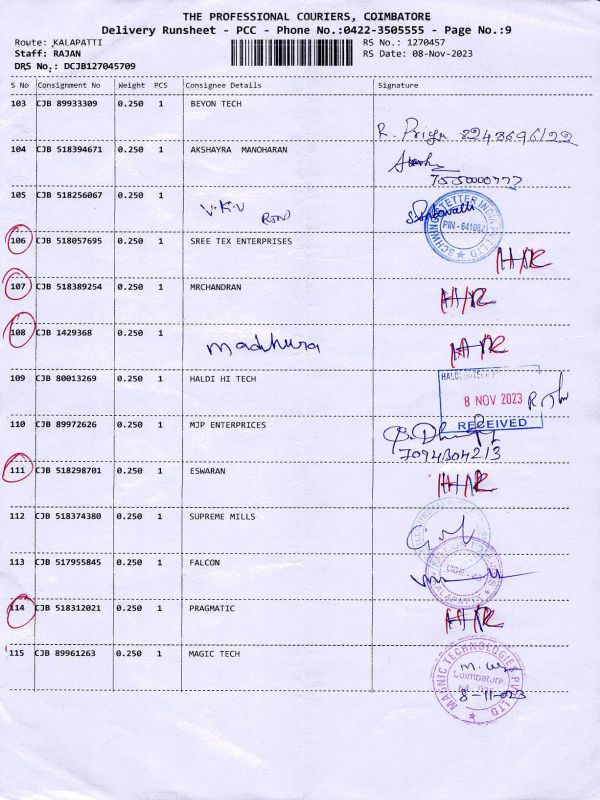 THE PROFESSIONAL COURIERS, COIMBATORE
Delivery Runsheet - PCC - Phone No.:0422-3505555 - Page No.:9
Route: KALAPATTI
RS No.: 1270457
Staff: RAJAN
RS Date: 08-Nov-2023
DRS No.: DCJB127045709
S No Consignment No Weight PCS Consignee Details Signature
103 CJB 89933309 0.250 1 BEYON TECH
R. Priya 8248696122
104 CJB 518394671 0.250 1 AKSHAYRA MANOHARAN
7550000777
105 CJB 518256067 0.250 1
V.K.V
SCHWING STETTER INDIA PVT LTD
PIN - 641062
106 CJB 518057695 0.250 1 SREE TEX ENTERPRISES
107 CJB 518389254 0.250 1 MRCHANDRAN
108 CJB 1429368 0.250 1
Madhura
109 CJB 80013269 0.250 1 HALDI HI TECH
8 NOV 2023
RECEIVED
110 CJB 89972626 0.250 1 MJP ENTERPRICES
7094304213
111 CJB 518298701 0.250 1 ESWARAN
112 CJB 518374380 0.250 1 SUPREME MILLS
113 CJB 517955845 0.250 1 FALCON
114 CJB 518312021 0.250 1 PRAGMATIC
115 CJB 89961263 0.250 1 MAGIC TECH
MAGNIC TECHNOLOGIES PVT LTD
Coimbatore
8-11-023